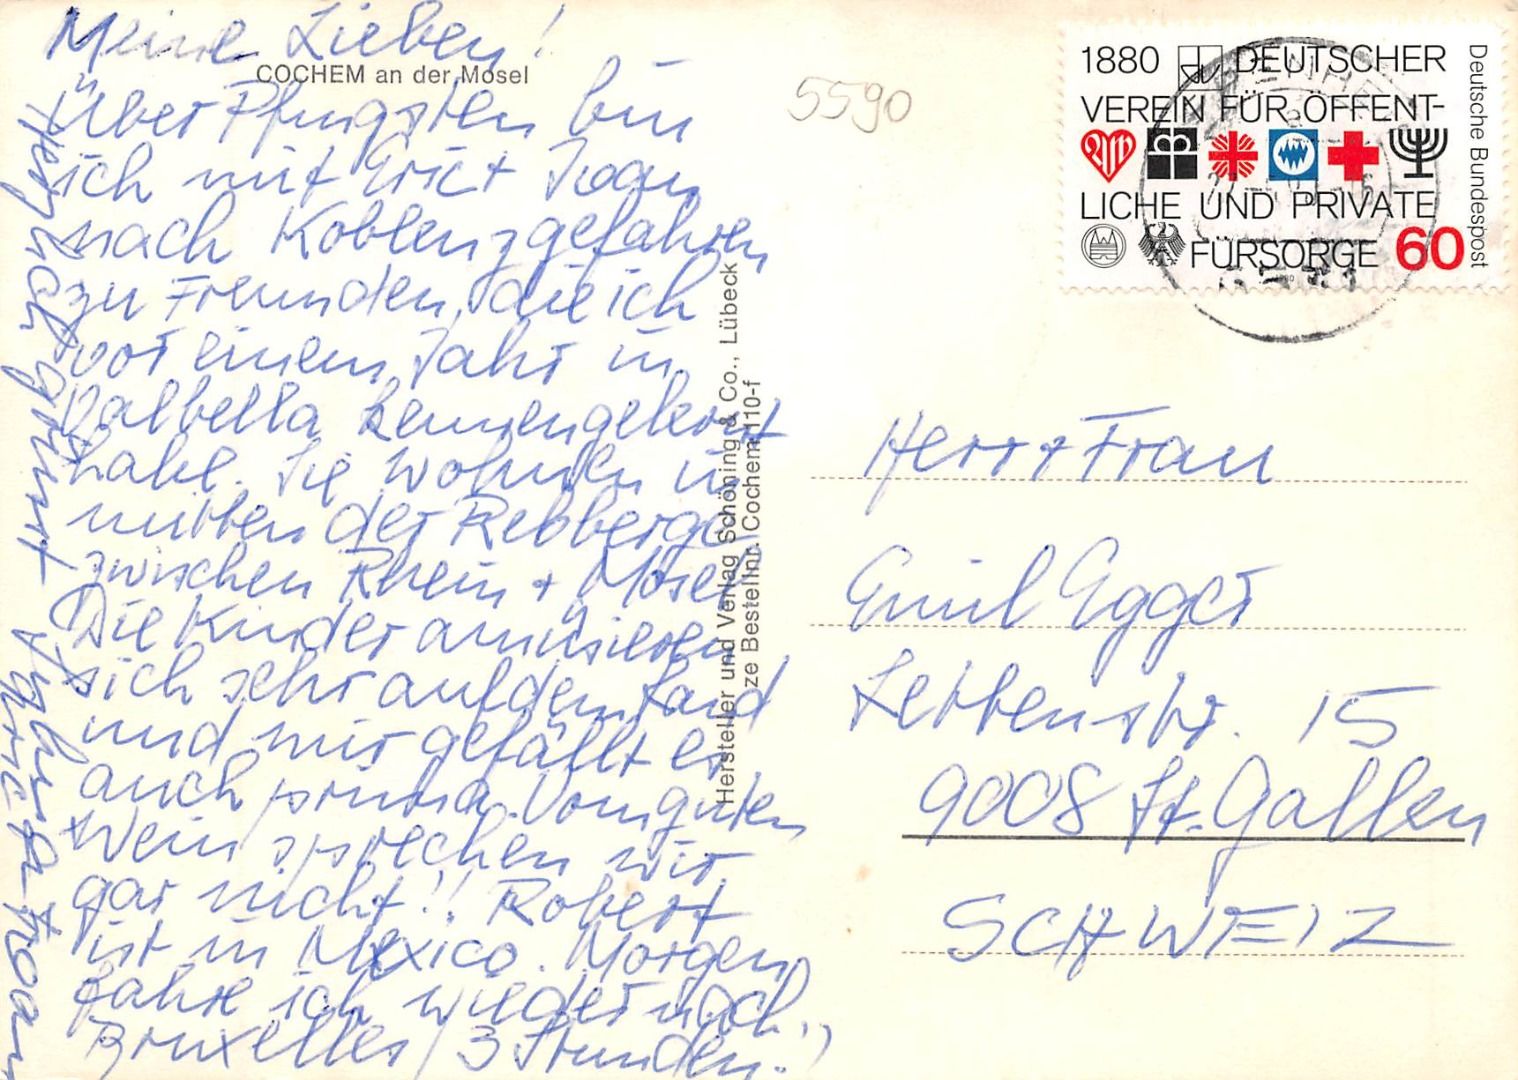 Meine Lieben!
COCHEM an der Mosel
Über Pfingsten bin
ich mit Eric + Joan
nach Koblenz gefahren
zu Freunden, die ich
vor einem Jahr in
Valbella kennengelernt
habe. Sie wohnen in
mitten der Rebberge
zwischen Rhein + Mosel
Die Kinder amüsieren
sich sehr auf dem Land
und mir gefällt es
auch prima. Vom guten
Wein sprechen wir
gar nicht!! Robert
ist in Mexico. Morgen
fahre ich wieder nach
Bruxelles / 3 Stunden.
Herzlich grüsst
Eric + Joan
Hersteller und Verlag Schöning & Co., Lübeck
ze Bestellnr. Cochem 110-f
5590
1880 DEUTSCHER
VEREIN FÜR ÖFFENT-
LICHE UND PRIVATE
FÜRSORGE 60
Deutsche Bundespost
Herr + Frau
Emil Egger
Lettenstr. 15
9008 St. Gallen
SCHWEIZ